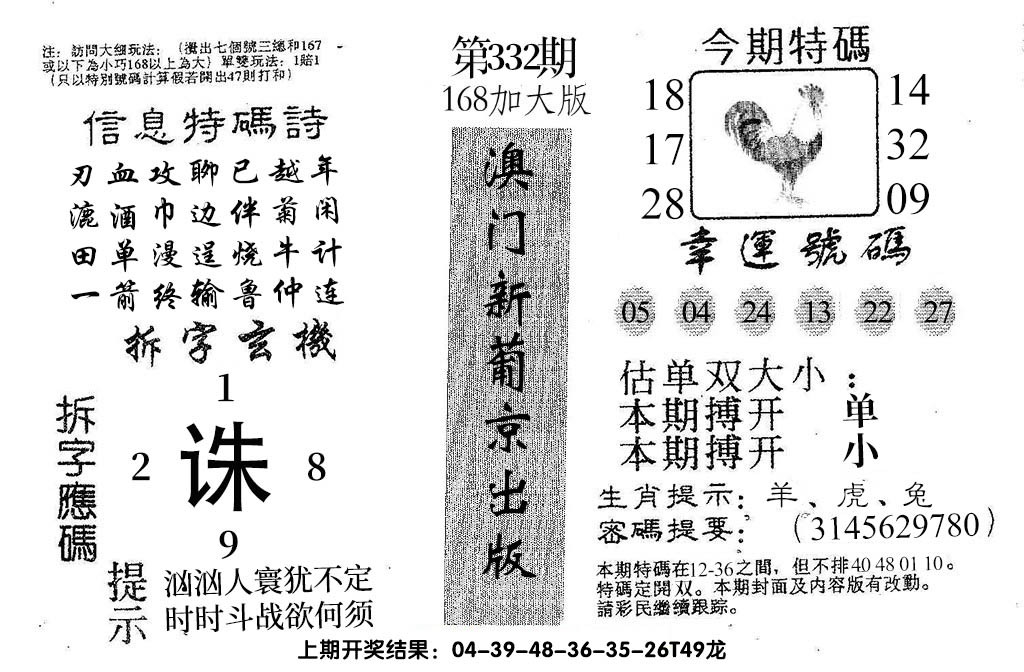 注：訪問大细玩法：（攪出七個號三總和167
或以下為小巧168以上為大）單雙玩法：1賠1
（只以特別號碼計算假若開出47則打和）
信息特碼詩
刃血攻聊已越年
漉酒巾边伴菊闲
田单漫逞烧牛计
一箭终输鲁仲连
拆字玄機
拆字應碼
1
2 诛 8
9
提示
汹汹人寰犹不定
时时斗战欲何须
第332期
168加大版
澳门新葡京出版
今期特碼
18 14
17 32
28 09
幸運號碼
05 04 24 13 22 27
估单双大小：
本期搏开 单
本期搏开 小
生肖提示：羊、虎、兔
密碼提要：（3145629780）
本期特碼在12-36之間，但不排40 48 01 10。
特碼定開双。本期封面及内容版有改動。
請彩民繼续跟踪。
上期开奖结果：04-39-48-36-35-26T49龙